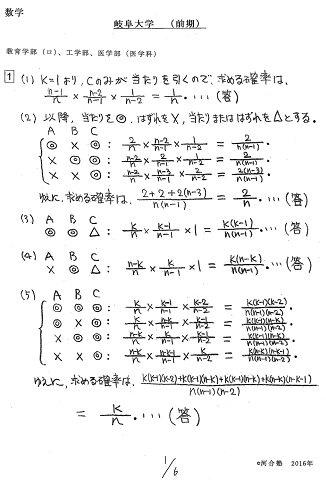 数学
岐阜大学 （前期）
教育学部（ロ）、工学部、医学部（医学科）
1 (1) K=1より, Cのみが当たりを引くので, 求める確率は,
n-1/n × n-2/n-1 × 1/n-2 = 1/n. …(答)
(2) 以降, 当たりを◎, はずれを×, 当たりまたははずれを△とする.
A B C
◎ × ◎ : 2/n × n-2/n-1 × 1/n-2 = 2/n(n-1).
× ◎ ◎ : n-2/n × 2/n-1 × 1/n-2 = 2/n(n-1).
× × ◎ : n-2/n × n-3/n-1 × 2/n-2 = 2(n-3)/n(n-1).
ゆえに, 求める確率は, 2+2+2(n-3)/n(n-1) = 2/n. …(答)
(3) A B C
◎ ◎ △ : k/n × k-1/n-1 × 1 = k(k-1)/n(n-1). …(答)
(4) A B C
× ◎ △ : n-k/n × k/n-1 × 1 = k(n-k)/n(n-1). …(答)
(5) A B C
◎ ◎ ◎ : k/n × k-1/n-1 × k-2/n-2 = k(k-1)(k-2)/n(n-1)(n-2).
◎ × ◎ : k/n × n-k/n-1 × k-1/n-2 = k(k-1)(n-k)/n(n-1)(n-2).
× ◎ ◎ : n-k/n × k/n-1 × k-1/n-2 = k(k-1)(n-k)/n(n-1)(n-2).
× × ◎ : n-k/n × n-k-1/n-1 × k/n-2 = k(n-k)(n-k-1)/n(n-1)(n-2).
ゆえに, 求める確率は, k(k-1)(k-2)+k(k-1)(n-k)+k(k-1)(n-k)+k(n-k)(n-k-1)/n(n-1)(n-2)
= k/n. …(答)
1/6
©河合塾 2016年